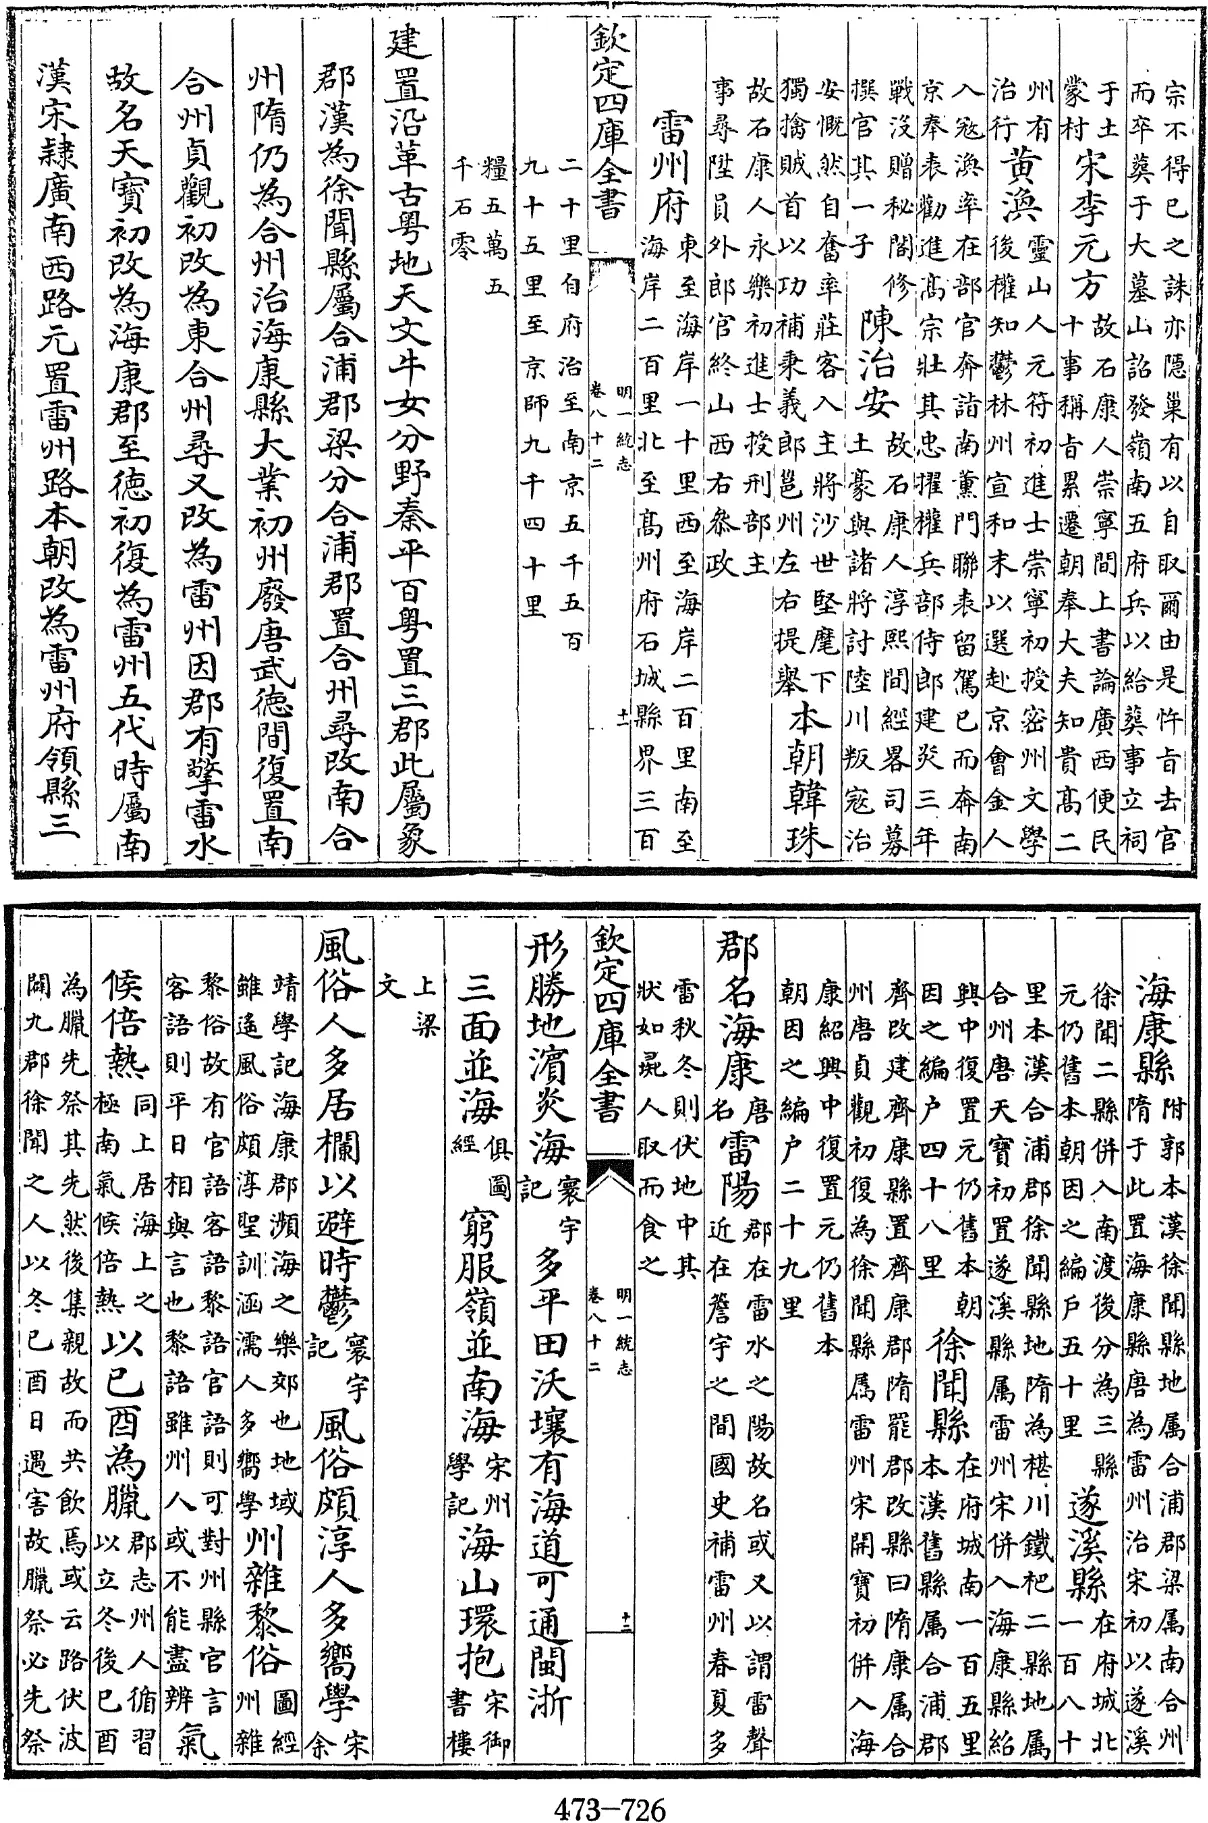 宗不得已之誅亦隠巢有以自取爾由是忤旨去官
而卒葬于大墓山詔發嶺南五府兵以給葬事立祠
于土蒙村宋李元方故石康人崇寧間上書論廣西便民十事稱旨累遷朝奉大夫知貴髙二
州有治行黄渙靈山人元符初進士崇寧初授密州文學後權知鬱林州宣和末以選赴京會金人
入宼渙率在部官奔詣南薫門聯表留駕已而奔南
京奉表勸進髙宗壯其忠擢權兵部侍郎建炎三年
戰没贈秘閣修撰官其一子陳治安故石康人淳熙間經畧司募土豪與諸將討陸川叛宼治
安慨然自奮率莊客入主將沙世堅麾下
獨擒賊首以功補秉義郎邕州左右提舉本朝韓珠
故石康人永樂初進士授刑部主
事尋陞員外郎官終山西右叅政
雷州府東至海岸一十里西至海岸二百里南至
海岸二百里北至髙州府石城縣界三百
欽定四庫全書
明一統志
卷八十二
十二
二十里自府治至南京五千五百
九十五里至京師九千四十里
糧五萬五
千石零
建置沿革古粤地天文牛女分野秦平百粤置三郡此屬象
郡漢為徐聞縣屬合浦郡梁分合浦郡置合州尋改南合
州隋仍為合州治海康縣大業初州廢唐武徳間復置南
合州貞觀初改為東合州尋又改為雷州因郡有擎雷水
故名天寳初改為海康郡至徳初復為雷州五代時屬南
漢宋隷廣南西路元置雷州路本朝改為雷州府領縣三
海康縣附郭本漢徐聞縣地属合浦郡梁属南合州
隋于此置海康縣唐為雷州治宋初以遂溪
徐聞二縣併入南渡後分為三縣
元仍舊本朝因之編戸五十里遂溪縣在府城北一百八十
里本漢合浦郡徐聞縣地隋為椹川鐵杷二縣地属
合州唐天寳初置遂溪縣属雷州宋併入海康縣紹
興中復置元仍舊本朝
因之編戸四十八里徐聞縣在府城南一百五里
本漢舊縣属合浦郡
齊改建齊康縣置齊康郡隋罷郡改縣曰隋康属合
州唐貞觀初復為徐聞縣属雷州宋開寳初併入海
康紹興中復置元仍舊本
朝因之編戸二十九里
郡名海康唐名雷陽郡在雷水之陽故名或又以謂雷聲
近在簷宇之間國史補雷州春夏多
雷秋冬則伏地中其
狀如彘人取而食之
欽定四庫全書
明一統志
卷八十二
十三
形勝地濵炎海寰宇記多平田沃壤有海道可通閩浙
三面並海俱圖經窮服嶺並南海宋州學記海山環抱宋御書樓
上梁
文
風俗人多居欄以避時鬱寰宇記風俗頗淳人多嚮學宋余
靖學記海康郡瀕海之樂郊也地域
雖遙風俗頗淳聖訓涵濡人多嚮學州雜黎俗圖經州雜
黎俗故有官語客語黎語官語則可對州縣官言
客語則平日相與言也黎語雖州人或不能盡辨氣
候倍熱同上居海上之極南氣候倍熱以已酉為臘郡志州人循習以立冬後巳酉
為臘先祭其先然後集親故而共飲焉或云路伏波
開九郡徐聞之人以冬已酉日遇害故臘祭必先祭
473-726